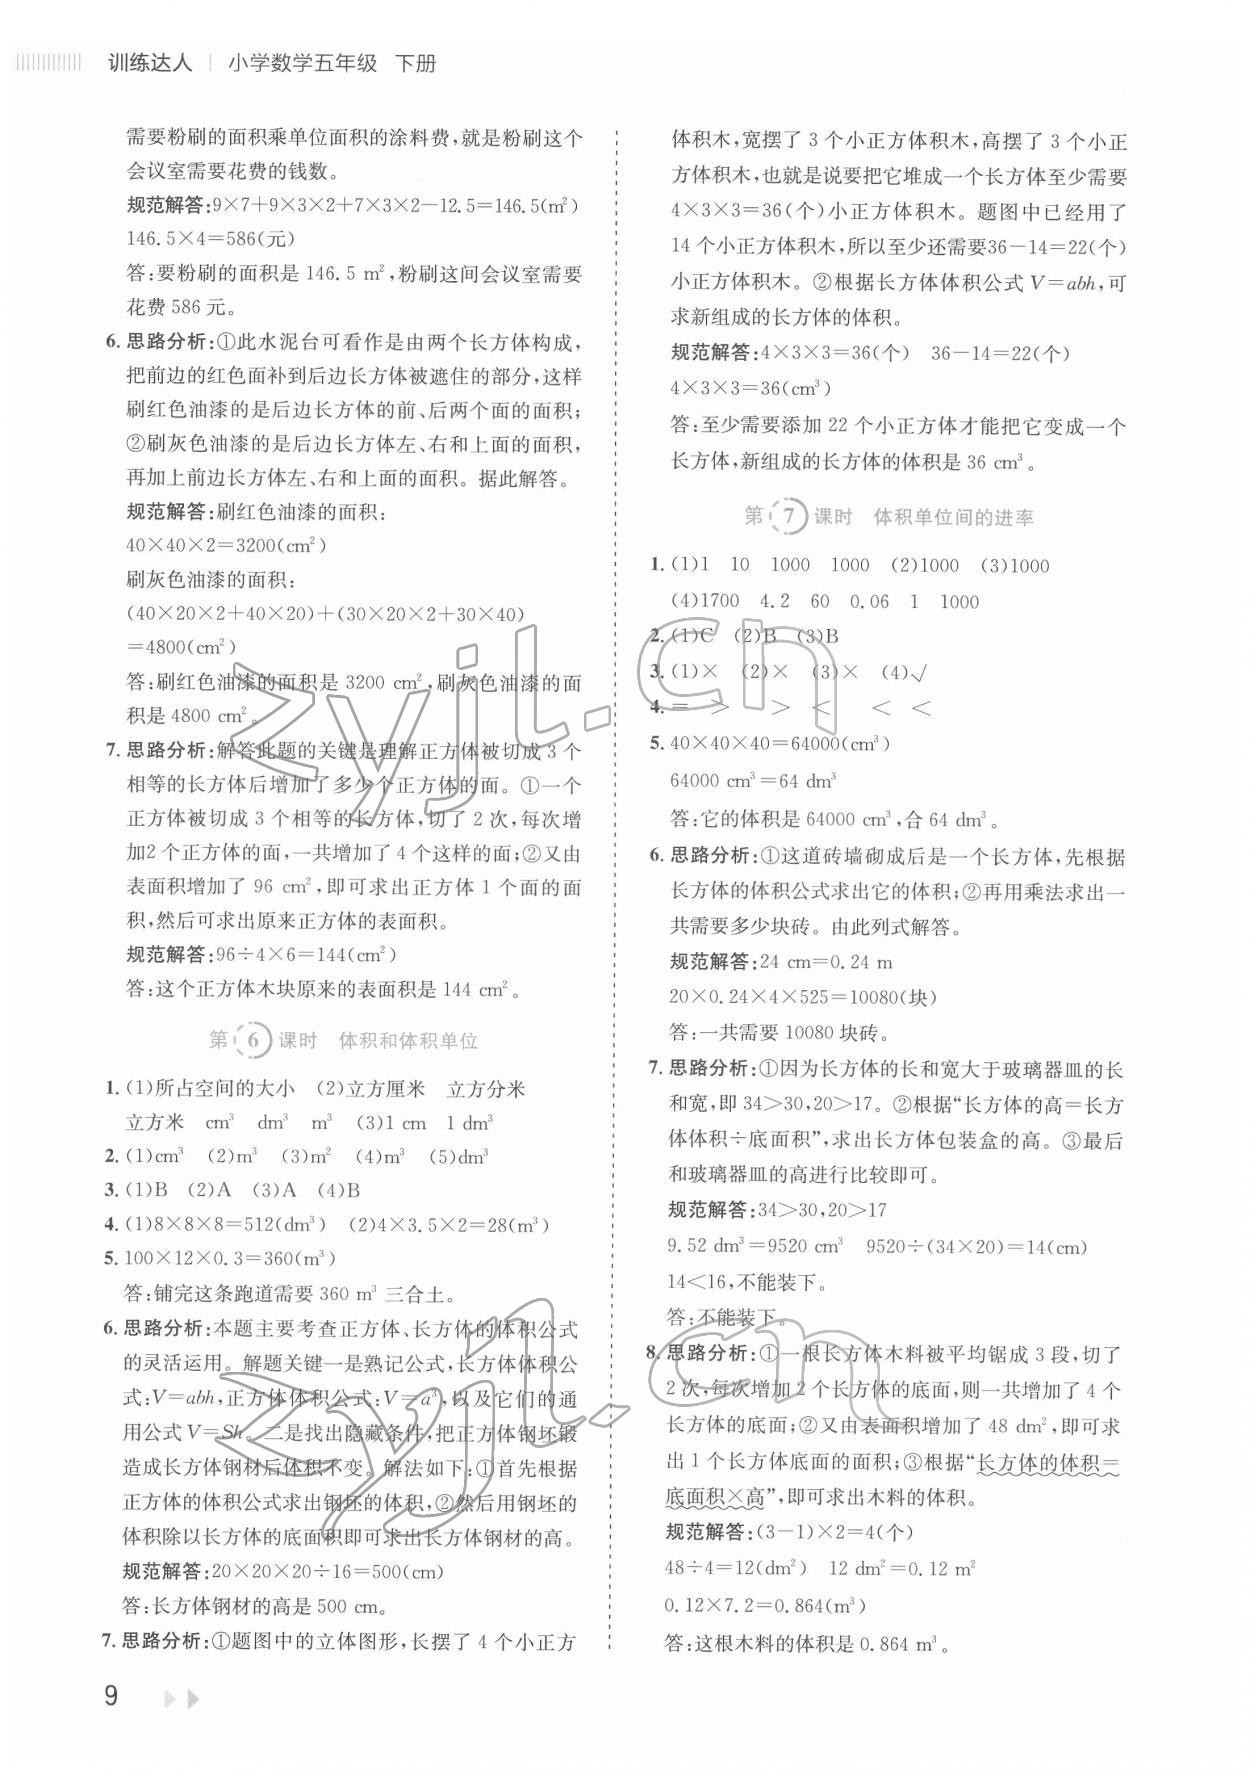 训练达人 | 小学数学五年级 下册
需要粉刷的面积乘单位面积的涂料费,就是粉刷这个
会议室需要花费的钱数。
规范解答:9×7+9×3×2+7×3×2-12.5=146.5(m²)
146.5×4=586(元)
答:要粉刷的面积是 146.5 m²,粉刷这间会议室需要
花费 586 元。
6. 思路分析:①此水泥台可看作是由两个长方体构成,
把前边的红色面补到后边长方体被遮住的部分,这样
刷红色油漆的是后边长方体的前、后两个面的面积;
②刷灰色油漆的是后边长方体左、右和上面的面积,
再加上前边长方体左、右和上面的面积。据此解答。
规范解答:刷红色油漆的面积:
40×40×2=3200(cm²)
刷灰色油漆的面积:
(40×20×2+40×20)+(30×20×2+30×40)
=4800(cm²)
答:刷红色油漆的面积是 3200 cm²,刷灰色油漆的面
积是 4800 cm²。
7. 思路分析:解答此题的关键是理解正方体被切成 3 个
相等的长方体后增加了多少个正方体的面。①一个
正方体被切成 3 个相等的长方体,切了 2 次,每次增
加2 个正方体的面,一共增加了 4 个这样的面;②又由
表面积增加了 96 cm²,即可求出正方体 1 个面的面
积,然后可求出原来正方体的表面积。
规范解答:96÷4×6=144(cm²)
答:这个正方体木块原来的表面积是 144 cm²。
第 6 课时 体积和体积单位
1. (1)所占空间的大小 (2)立方厘米 立方分米
立方米 cm³ dm³ m³ (3)1 cm 1 dm³
2. (1)cm³ (2)m³ (3)m² (4)m³ (5)dm³
3. (1)B (2)A (3)A (4)B
4. (1)8×8×8=512(dm³) (2)4×3.5×2=28(m³)
5. 100×12×0.3=360(m³)
答:铺完这条跑道需要 360 m³ 三合土。
6. 思路分析:本题主要考查正方体、长方体的体积公式
的灵活运用。解题关键一是熟记公式,长方体体积公
式:V=abh,正方体体积公式:V=a³,以及它们的通
用公式 V=Sh。二是找出隐藏条件,把正方体钢坯锻
造成长方体钢材后体积不变。解法如下:①首先根据
正方体的体积公式求出钢坯的体积,②然后用钢坯的
体积除以长方体的底面积即可求出长方体钢材的高。
规范解答:20×20×20÷16=500(cm)
答:长方体钢材的高是 500 cm。
7. 思路分析:①题图中的立体图形,长摆了 4 个小正方
体积木,宽摆了 3 个小正方体积木,高摆了 3 个小正
方体积木,也就是说要把它堆成一个长方体至少需要
4×3×3=36(个)小正方体积木。题图中已经用了
14 个小正方体积木,所以至少还需要36-14=22(个)
小正方体积木。②根据长方体体积公式 V=abh,可
求新组成的长方体的体积。
规范解答:4×3×3=36(个) 36-14=22(个)
4×3×3=36(cm³)
答:至少需要添加 22 个小正方体才能把它变成一个
长方体,新组成的长方体的体积是 36 cm³。
第 7 课时 体积单位间的进率
1. (1)1 10 1000 1000 (2)1000 (3)1000
(4)1700 4.2 60 0.06 1 1000
2. (1)C (2)B (3)B
3. (1)× (2)× (3)× (4)√
4. = > > < < <
5. 40×40×40=64000(cm³)
64000 cm³=64 dm³
答:它的体积是 64000 cm³,合 64 dm³。
6. 思路分析:①这道砖墙砌成后是一个长方体,先根据
长方体的体积公式求出它的体积;②再用乘法求出一
共需要多少块砖。由此列式解答。
规范解答:24 cm=0.24 m
20×0.24×4×525=10080(块)
答:一共需要 10080 块砖。
7. 思路分析:①因为长方体的长和宽大于玻璃器皿的长
和宽,即 34>30,20>17。②根据“长方体的高=长方
体体积÷底面积”,求出长方体包装盒的高。③最后
和玻璃器皿的高进行比较即可。
规范解答:34>30,20>17
9.52 dm³=9520 cm³ 9520÷(34×20)=14(cm)
14<16,不能装下。
答:不能装下。
8. 思路分析:①一根长方体木料被平均锯成 3 段,切了
2 次,每次增加 2 个长方体的底面,则一共增加了 4 个
长方体的底面;②又由表面积增加了 48 dm²,即可求
出 1 个长方体底面的面积;③根据“长方体的体积=
底面积×高”,即可求出木料的体积。
规范解答:(3-1)×2=4(个)
48÷4=12(dm²) 12 dm²=0.12 m²
0.12×7.2=0.864(m³)
答:这根木料的体积是 0.864 m³。
9
zyjl.cn
zyjl.cn